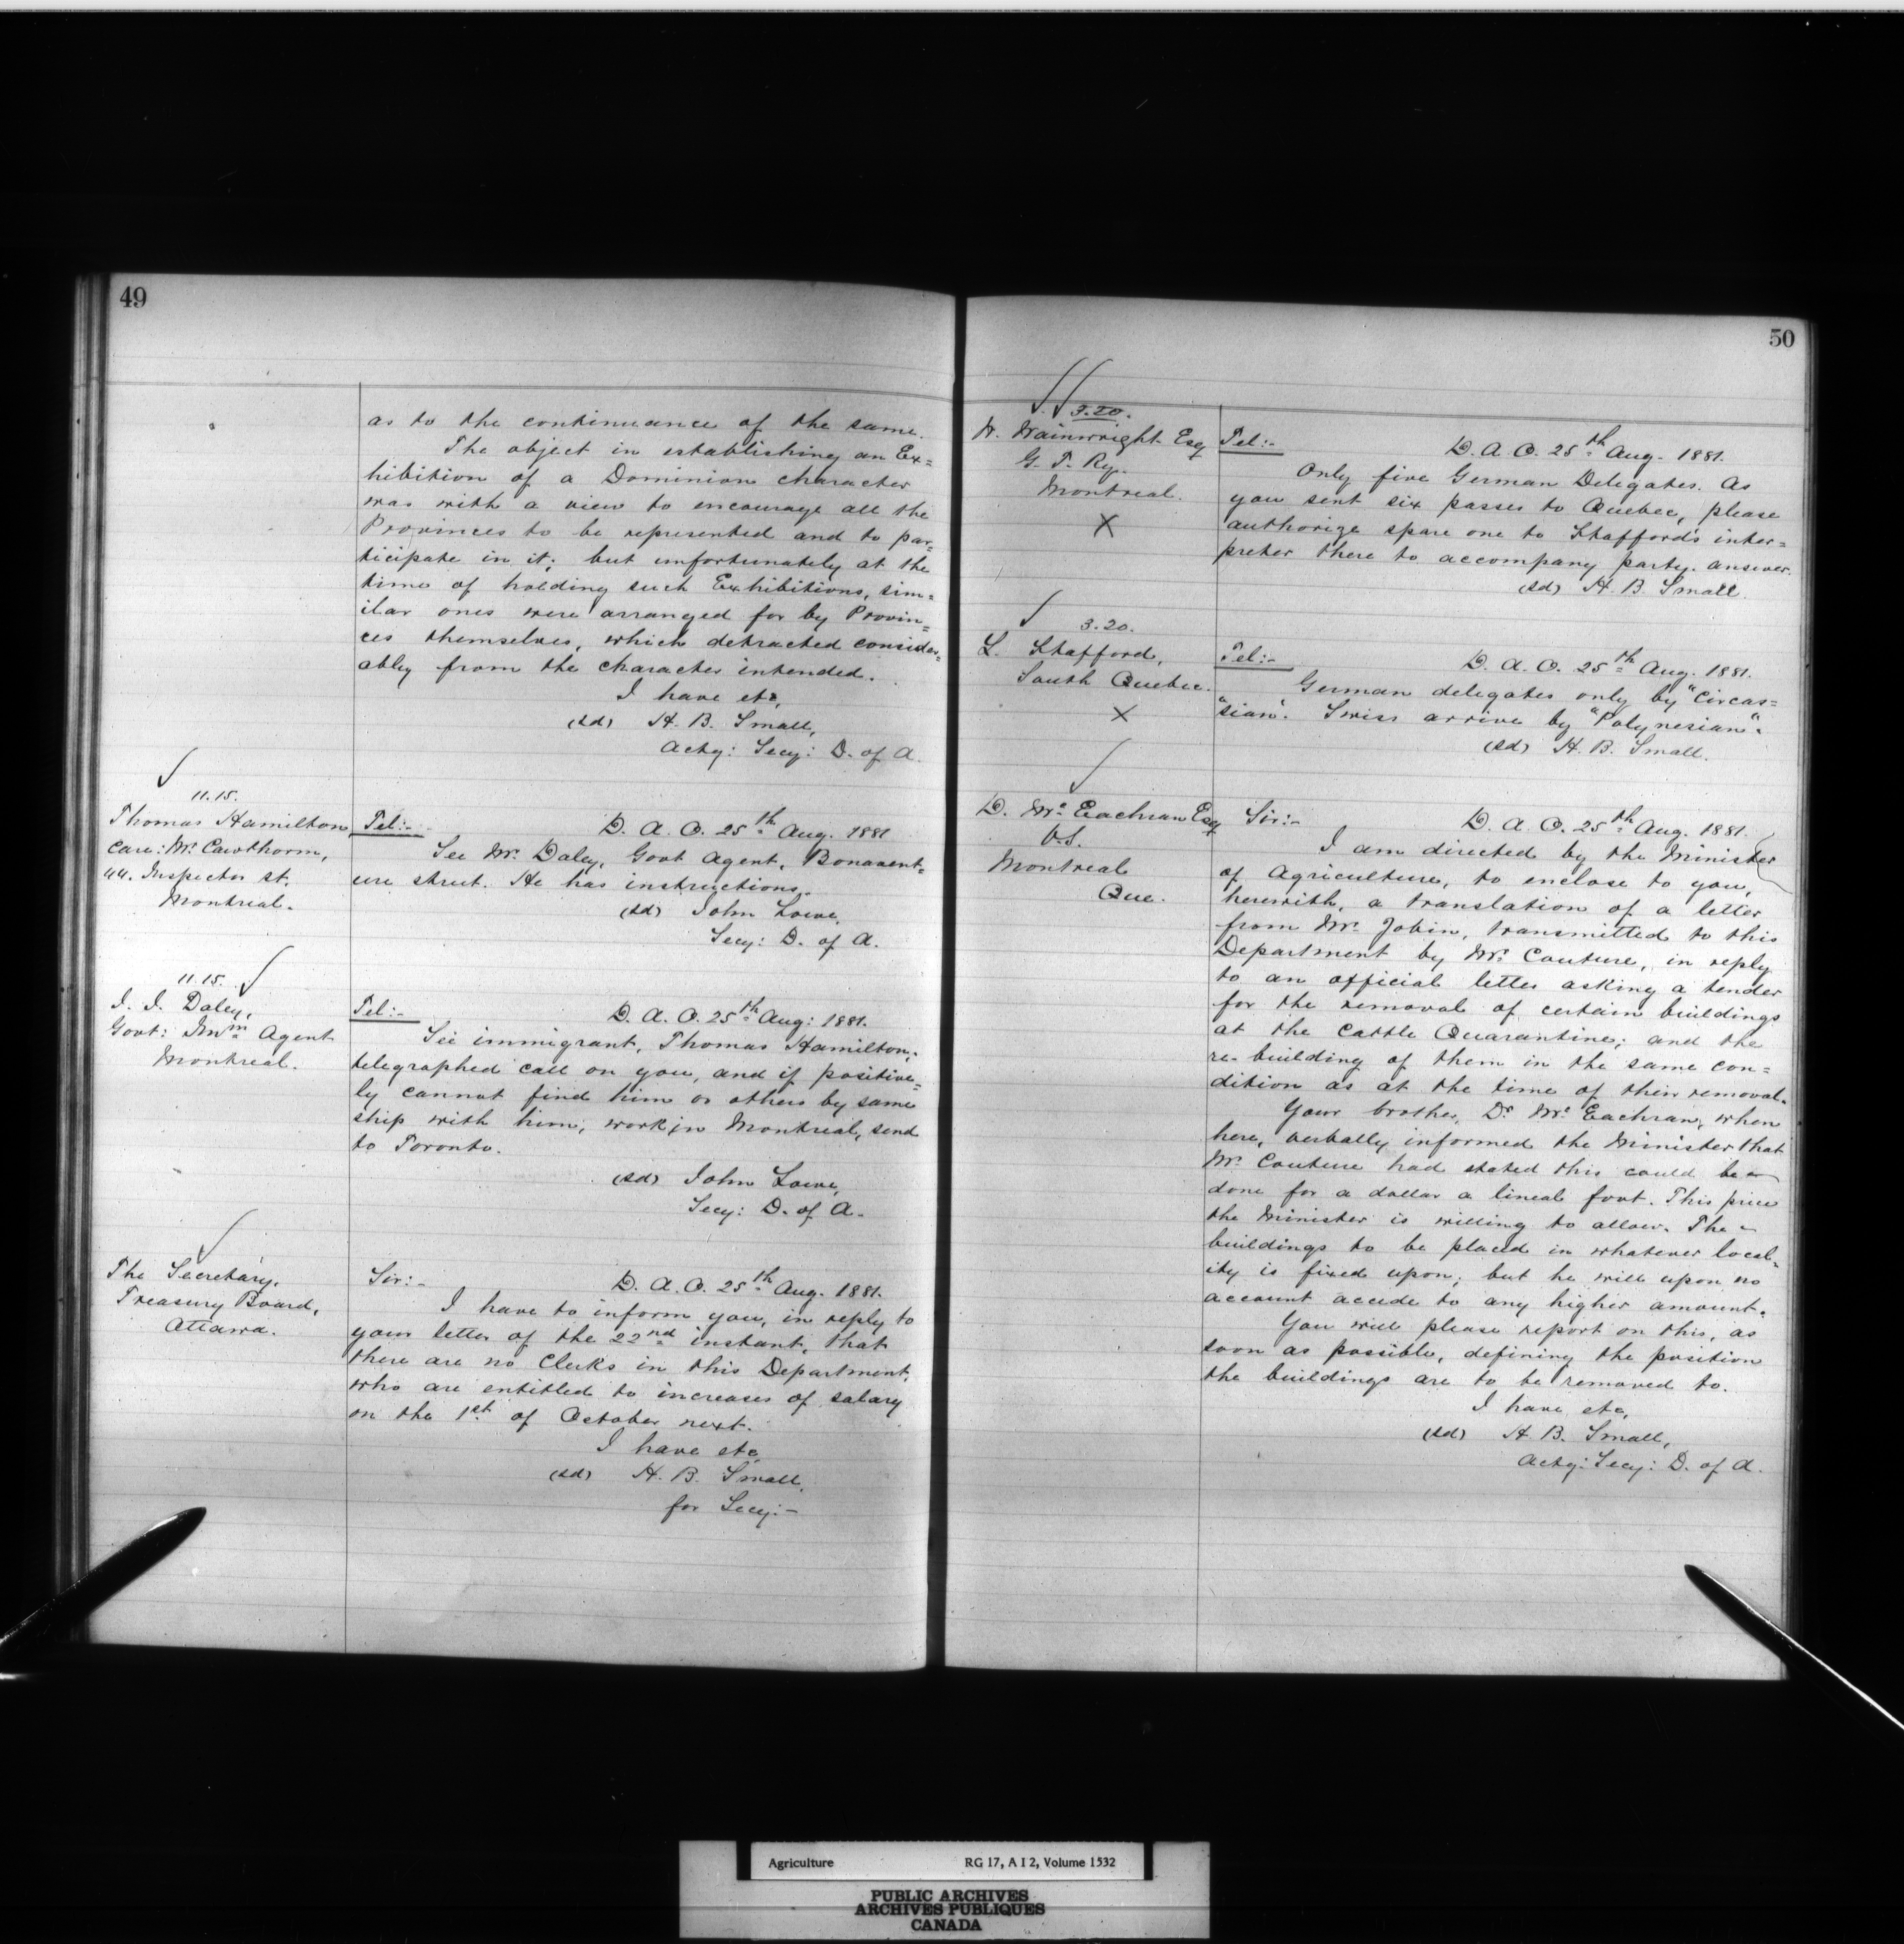 49
as to the continuance of the same.
The object in establishing an Ex=
hibition of a Dominion character
was with a view to encourage all the
Provinces to be represented and to par=
ticipate in it; but unfortunately at the
time of holding such Exhibitions, sim=
ilar ones were arranged for by Provin=
ces themselves, which detracted consider=
ably from the character intended.
I have etc,
(sd) H. B. Small,
Actg: Secy: D. of A.
11.15.
Thomas Hamilton,
Care: Mr. Cawthorm,
44. Inspector st.
Montreal.
Tel:-
D. A. O. 25th Aug. 1881
See Mr. Daley, Govt Agent, Bonavent=
ure street. He has instructions.
(sd) John Lowe,
Secy: D. of A.
11.15.
J. J. Daley,
Govt: Immn Agent
Montreal.
Tel:-
D. A. O. 25th Aug: 1881.
See immigrant, Thomas Hamilton,
telegraphed call on you, and if positive=
ly cannot find him or others by same
ship with him, work in Montreal, send
to Toronto.
(sd) John Lowe,
Secy: D. of A.
The Secretary,
Treasury Board,
Ottawa.
Sir:-
D. A. O. 25th Aug. 1881.
I have to inform you, in reply to
your letter of the 22nd instant, that
there are no Clerks in this Department,
who are entitled to increases of salary
on the 1st of October next.
I have etc
(sd) H. B. Small,
for Secy:-
50
3.20.
W. Wainwright Esq
G. T. Ry.
Montreal.
X
Tel:-
D. A. O. 25th Aug. 1881.
Only five German Delegates. As
you sent six passes to Quebec, please
authorize spare one to Stafford's inter=
preter there to accompany party. answer.
(sd) H. B. Small.
3.20.
L. Stafford,
South Quebec.
X
Tel:-
D. A. O. 25th Aug. 1881.
German delegates only by "Circas=
"sian". Swiss arrive by "Polynesian".
(sd) H. B. Small.
D. Mc Eachran Esq
V.S.
Montreal
Que.
Sir:-
D. A. O. 25th Aug. 1881.
I am directed by the Minister
of Agriculture, to enclose to you,
herewith, a translation of a letter
from Mr. Jobin, transmitted to this
Department by Mr. Couture, in reply
to an official letter asking a tender
for the removal of certain buildings
at the Cattle Quarantine; and the
re-building of them in the same con=
dition as at the time of their removal.
Your brother, Dr Mc Eachran, when
here, verbally informed the Minister that
Mr. Couture had stated this could be
done for a dollar a lineal foot. This price
the Minister is willing to allow. The
buildings to be placed in whatever local=
ity is fixed upon; but he will upon no
account accede to any higher amount.
You will please report on this, as
soon as possible, defining the position
the buildings are to be removed to.
I have etc,
(sd) H. B. Small,
Actg: Secy: D. of A.
Agriculture RG 17, A I 2, Volume 1532
PUBLIC ARCHIVES
ARCHIVES PUBLIQUES
CANADA